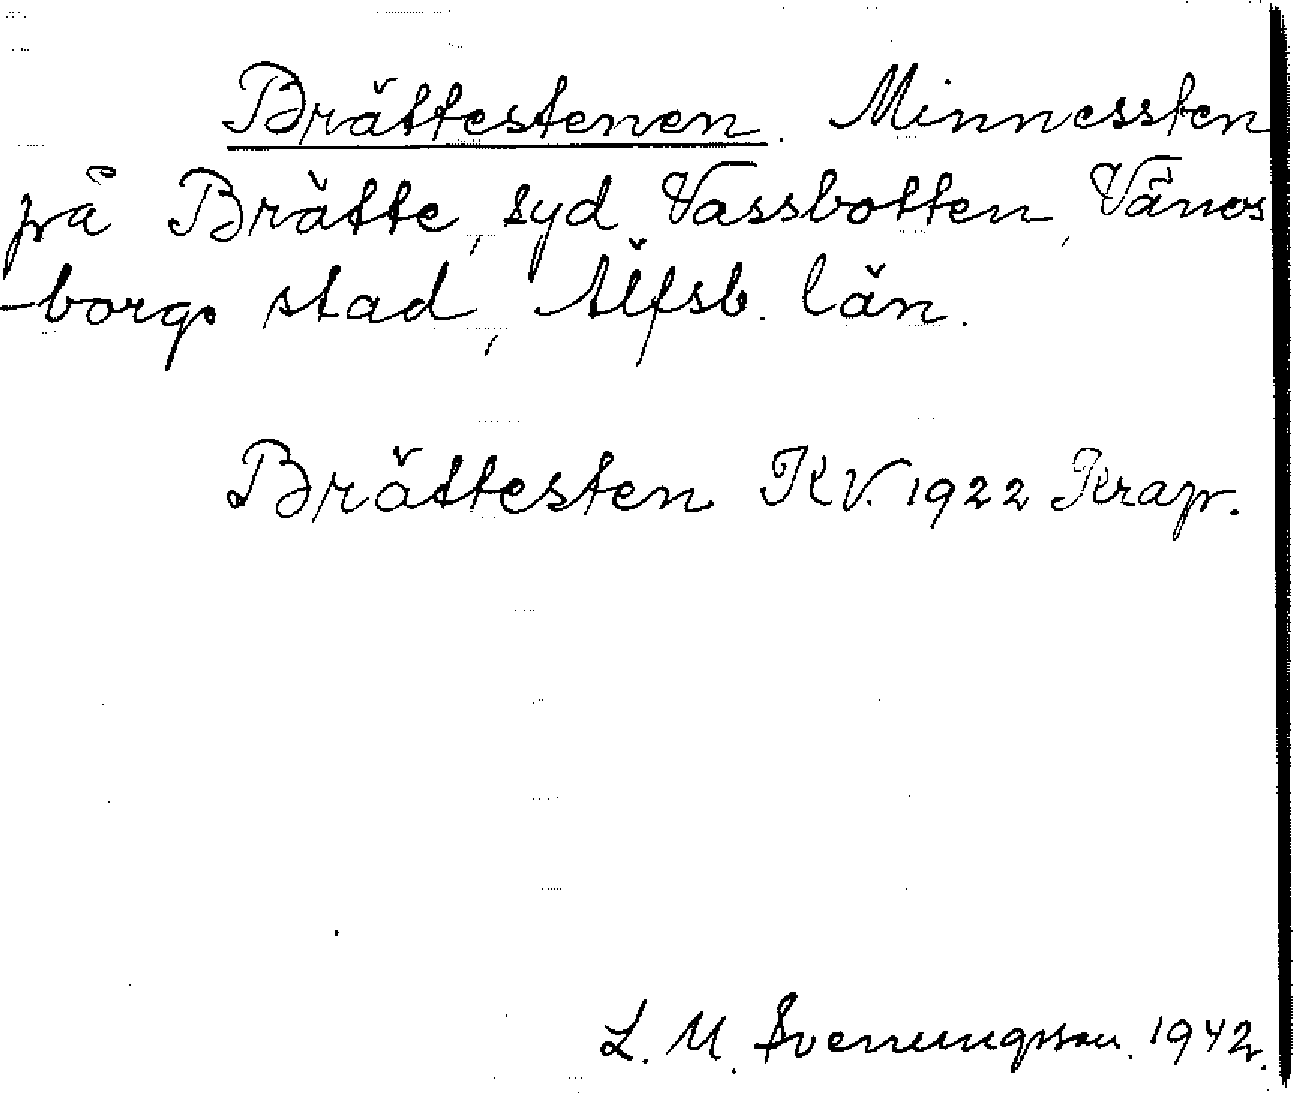 Brättestenen. Minnessten
på Brätte, syd Vassbotten, Väners
-borgs stad, Älfsb. län.
Brättesten KV. 1922 Krap.
L. M. Svenungsson. 1942.